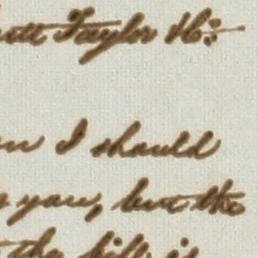 Taylor
I should
you, but the
the bill is